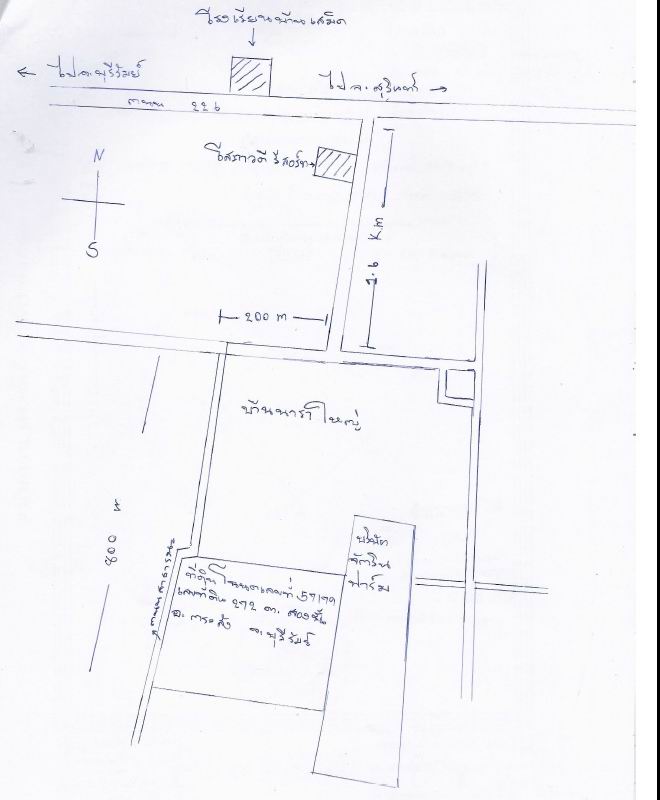 โรงเรียนบ้านเสม็ด
ไป จ.บุรีรัมย์
ไป จ. สุรินทร์
ถนน 226
N
S
รีสอร์ท
1.6 Km
200 m
บ้านนารา ใหญ่
800 ม
ถนนสาธารณะ
ที่ดิน โฉนดเลขที่
เลขที่ดิน 272 ต. สองชั้น
อ. กระสัง จ. บุรีรัมย์
บริษัท
ฟาร์ม